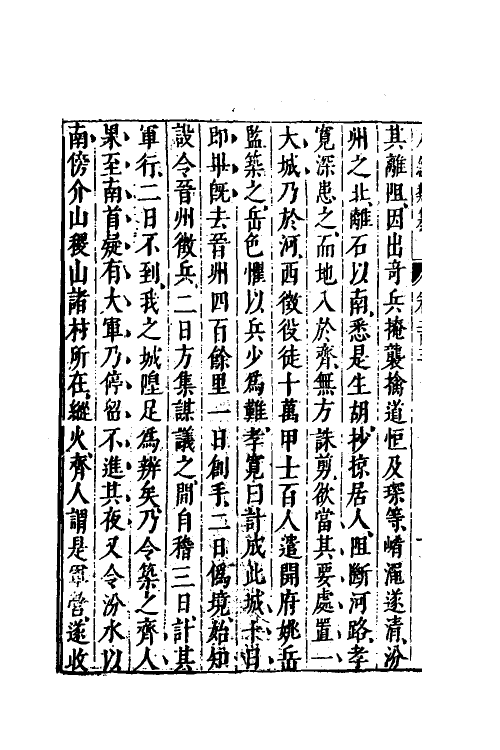 其離阻因出奇兵掩襲擒道恒及琛等崤澠遂清汾
州之北離石以南悉是生胡抄掠居人阻斷河路孝
寬深患之而地入於齊無方誅剪欲當其要處置一
大城乃於河西徵役徒十萬甲士百人遣開府姚岳
監築之岳色懼以兵少爲難孝寬曰計成此城十日
即畢既去晉州四百餘里一日創手二日僞境始知
設令晉州徵兵二日方集謀議之間自稽三日計其
軍行二日不到我之城隍足爲辨矣乃令築之齊人
果至南首疑有大軍乃停留不進其夜又令汾水以
南傍介山稷山諸村所在縱火齊人謂是軍營遂收